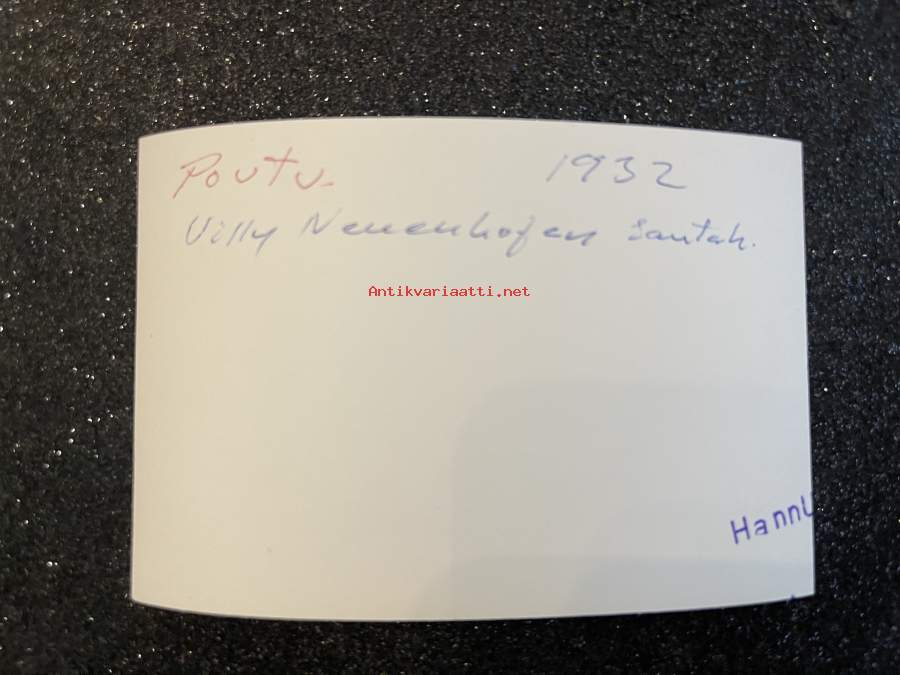 Poutu- 1932
Villy Neuenhofen Santah.
Antikvariaatti.net
Hannu